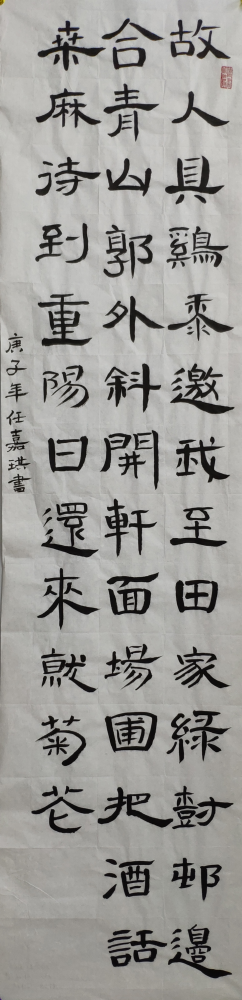 故人具鷄黍邀我至田家緑樹邨邊
合青山郭外斜開軒面場圃把酒話
桑麻待到重陽日還來就菊花
庚子年任嘉琪書